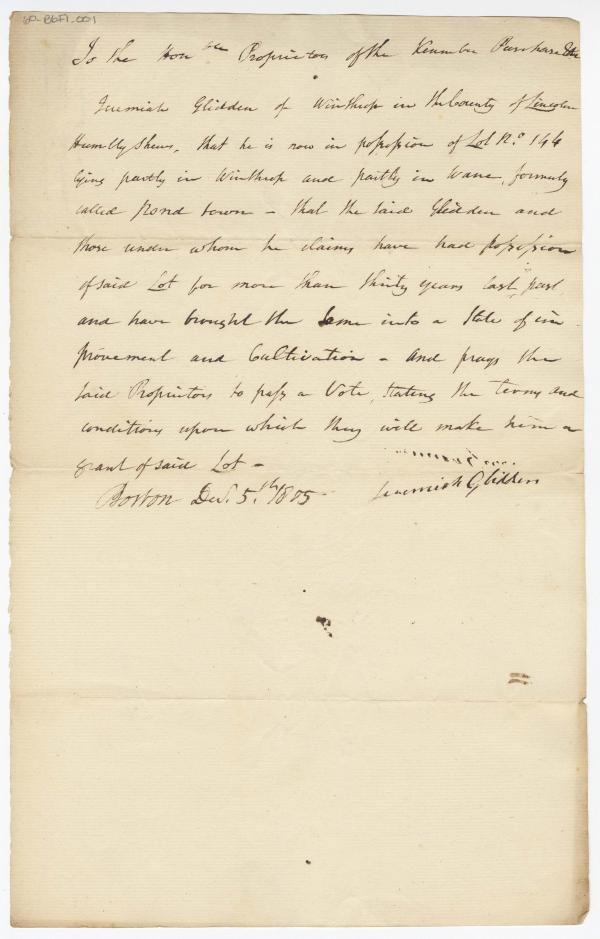 60-B6F1-001
To the Hon ble Proprietors of the Kennebec Purchase &c
Jeremiah Glidden of Winthrop in the County of Lincoln
Humbly Shews, that he is now in possession of Lot No. 144
lying partly in Winthrop and partly in Wane, formerly
called Pond town - that the said Glidden and
those under whom he claims have had possession
of said Lot for more than thirty years last past
and have brought the Same into a State of im
provement and Cultivation - and prays the
said Proprietors to pass a Vote, stating the terms and
conditions upon which they will make him a
grant of said Lot -
Boston Decr. 5.th 1805 -
Jeremiah Glidden